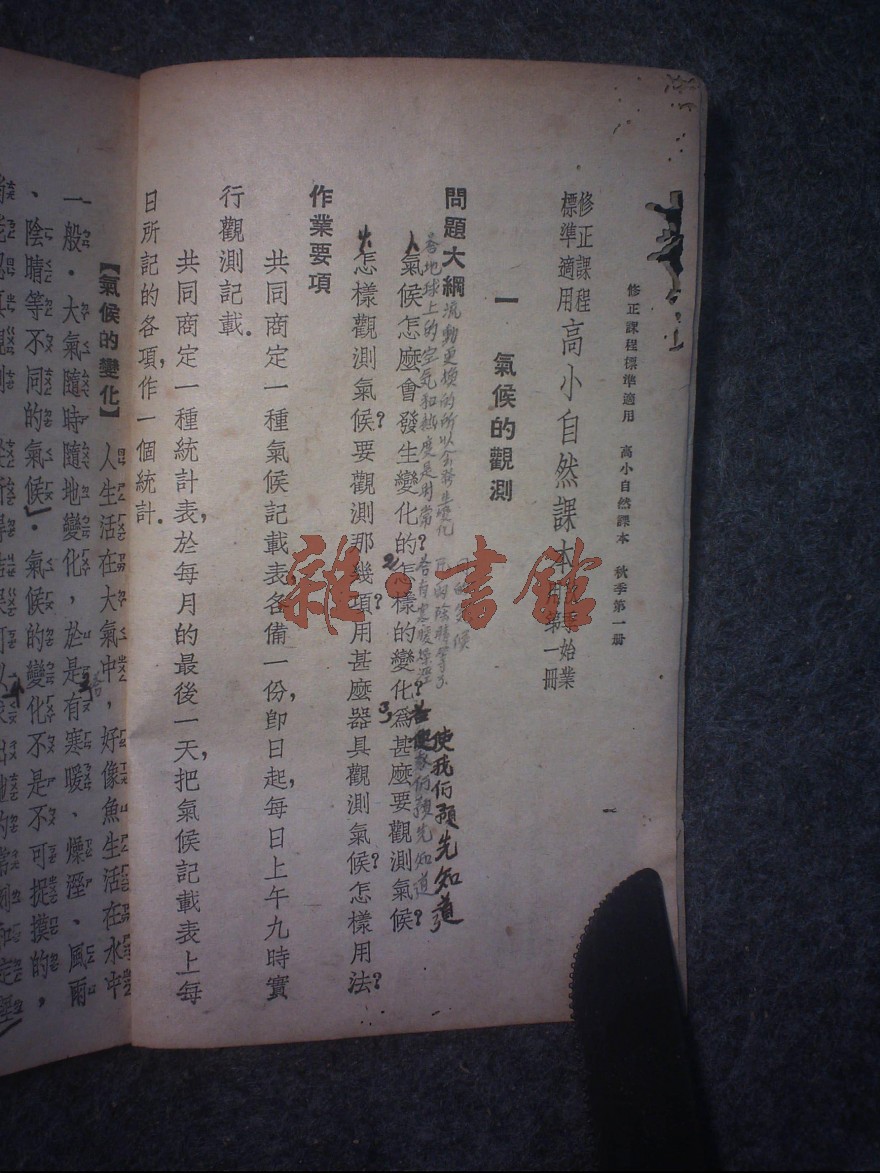 修正課程標準適用 高小自然課本 秋季第一册
一
修正課程
標準適用 高小自然課本 始業 第一册
一 氣候的觀測
問題大綱
氣候怎麼會發生變化的?怎樣的變化?為甚麼要觀測氣候?
答地球上的空气和
流動更換的所以会發生变化
使我们預先知道
怎樣觀測氣候?要觀測那幾項?用甚麼器具觀測氣候?怎樣用法?
作業要項
共同商定一種氣候記載表各備一份,卽日起,每日上午九時實
行觀測記載.
共同商定一種統計表,於每月的最後一天,把氣候記載表上每
日所記的各項,作一個統計.
【氣候的變化】 人生活在大氣中,好像魚生活在水中
一般.大氣隨時隨地變化,於是有寒暖、燥溼、風雨
、陰晴等不同的『氣候』.氣候的變化不是不可捉摸的,
雜·書館